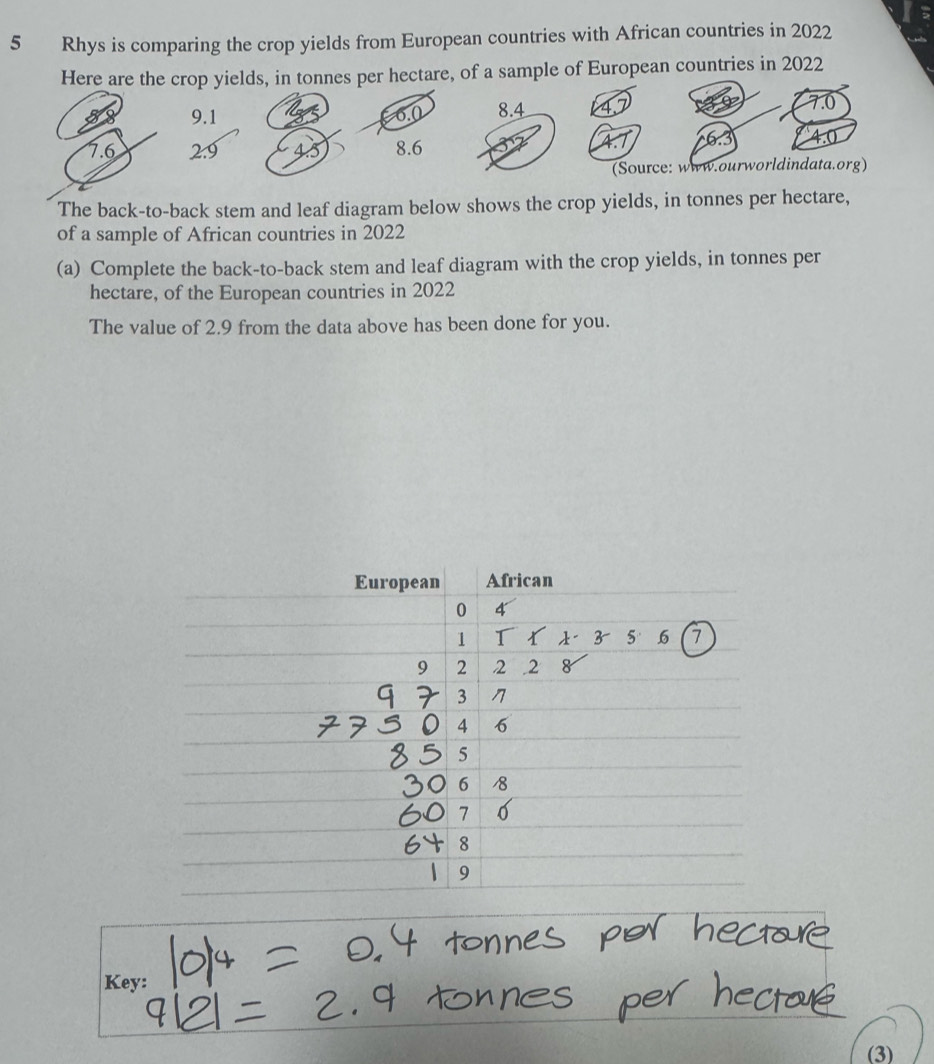 5 Rhys is comparing the crop yields from European countries with African countries in 2022
Here are the crop yields, in tonnes per hectare, of a sample of European countries in 2022
5.8 9.1 5.5 6.0 8.4 4.7 3.9 7.0
7.6 2.9 4.5 8.6 3.7 4.7 6.3 4.0
(Source: www.ourworldindata.org)
The back-to-back stem and leaf diagram below shows the crop yields, in tonnes per hectare,
of a sample of African countries in 2022
(a) Complete the back-to-back stem and leaf diagram with the crop yields, in tonnes per
hectare, of the European countries in 2022
The value of 2.9 from the data above has been done for you.
European African
0 4
1 1 1 1 3 5 6 7
9 2 2 2 8
9 7 3 7
7 7 5 0 4 6
8 5 5
3 0 6 8
6 0 7 0
6 4 8
1 9
Key: |0|4 = 0.4 tonnes per hectare
9|2| = 2.9 tonnes per hectare
(3)